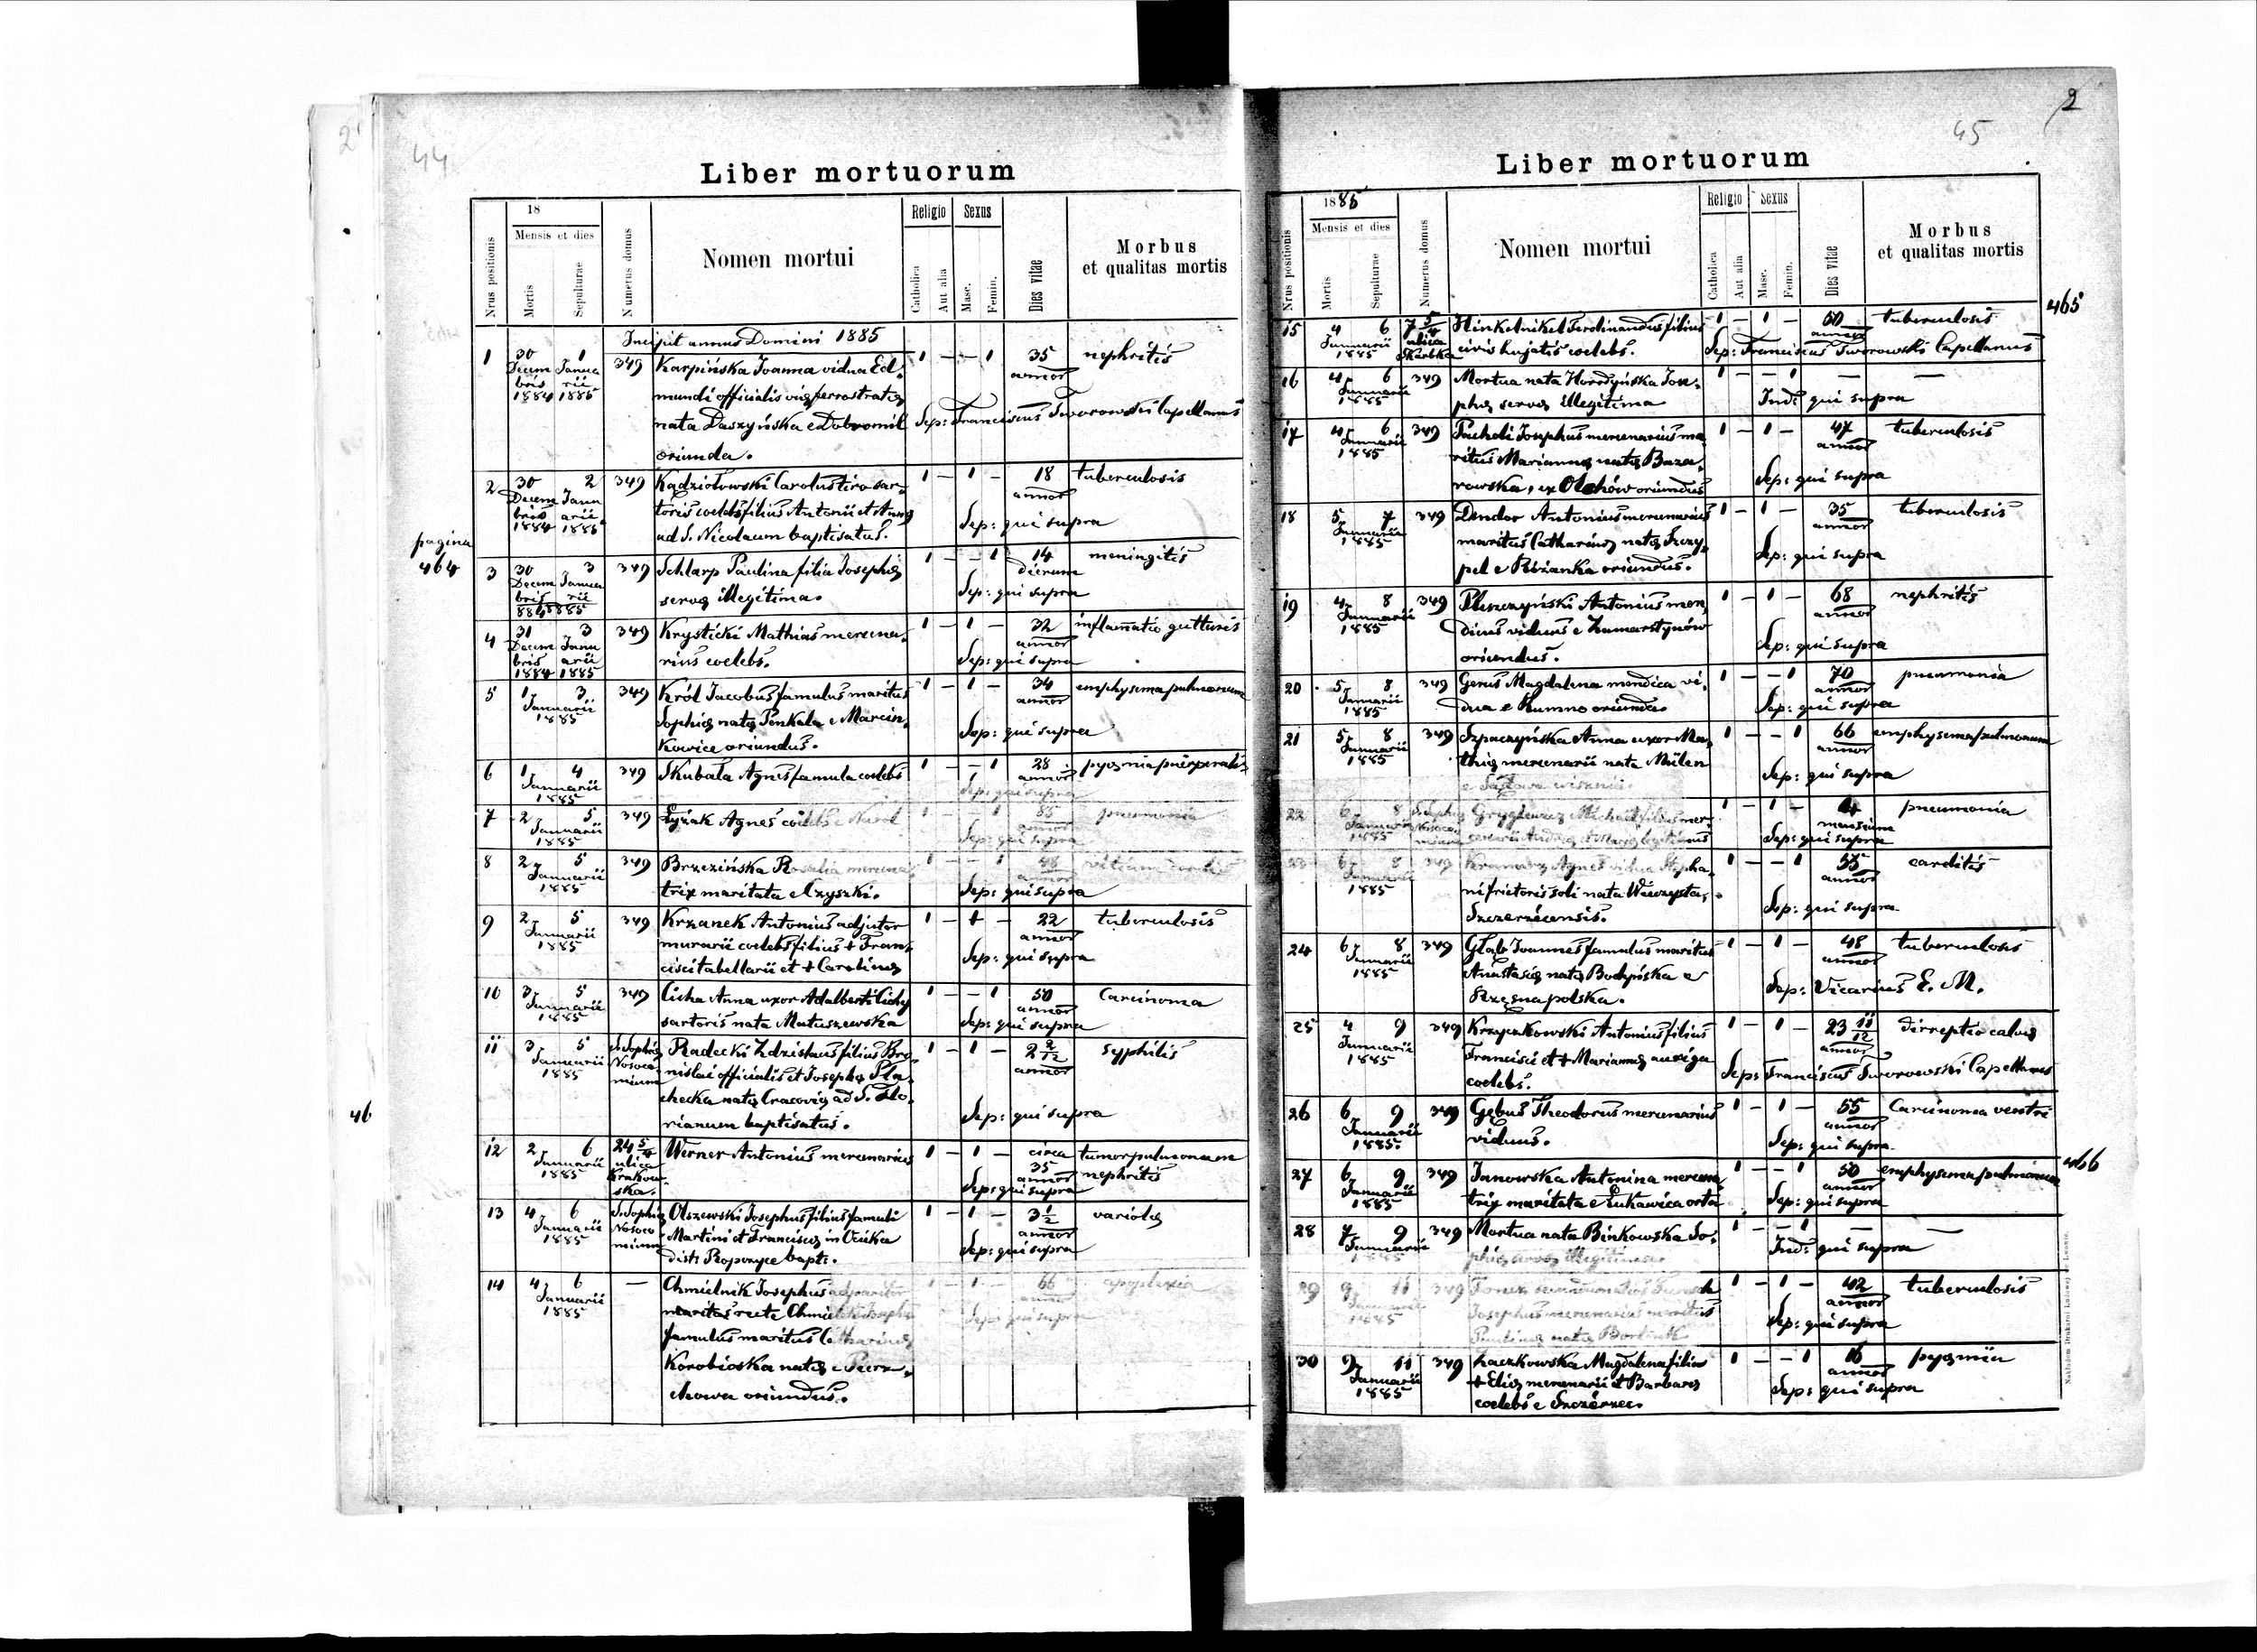 44
Liber mortuorum
Nrus positionis
18
Mensis et dies
Mortis
Sepulturae
Numerus domus
Nomen mortui
Religio
Catholica
Aut alia
Sexus
Masc.
Femin.
Dies vitae
Morbus
et qualitas mortis
Incipit annus Domini 1885
1 30 Decembris 1884 1 Januarii 1885 349 Karpińska Joanna vidua Ed- 1 — — 1 35 annor nephritis
mundi officialis viæ ferrostratæ
nata Daszyńska e Dobromil Sep: Franciscus Tworowski Capellanus
oriunda.
2 30 Decembris 1884 2 Januarii 1885 349 Kądziołowski Carolus tiro sar- 1 — 1 — 18 annor tuberculosis
toris coelebs filius Antonii et Annæ Sep: qui supra
ad S. Nicolaum baptisatus.
pagina
464
3 30 Decembris 884 3 Januarii 885 349 Schlarp Paulina filia Josephæ 1 — — 1 14 dierum meningitis
servæ illegitima. Sep: qui supra
4 31 Decembris 1884 3 Januarii 1885 349 Krysticki Mathias mercena- 1 — 1 — 32 annor inflamatio gutturis
rius coelebs. Sep: qui supra
5 1 3 Januarii 1885 349 Król Jacobus famulus maritus 1 — 1 — 34 annor emphysema pulmonum
Sophiæ natæ Penkala e Marcin- Sep: qui supra
kowice oriundus.
6 1 4 Januarii 1885 349 Skubała Agnes famula coelebs 1 — — 1 28 annor pyæmia puerperalis
Sep: qui supra
7 2 5 Januarii 1885 349 Łyżak Agnes coelebs e 1 — — 1 85 annor pneumonia
Sep: qui supra
8 2 5 Januarii 1885 349 Brzezińska Rosalia mercena- 1 — — 1 48 annor vitium cordis
trix maritata e Czyszki. Sep: qui supra
9 2 5 Januarii 1885 349 Krzanek Antonius adjutor 1 — 1 — 22 annor tuberculosis
murarii coelebs filius + Fran-
cisci tabellarii et + Carolinæ Sep: qui supra
10 3 5 Januarii 1885 349 Cicha Anna uxor Adalberti Cichy 1 — — 1 50 annor Carcinoma
sartoris nata Matuszewska Sep: qui supra
11 3 5 Januarii 1885 S. Sophiæ Nosocomium Radecki Zdzislaus filius Bro- 1 — 1 — 2 2/12 annor syphilis
nislai officialis et Josephæ Pla-
checka natæ Cracoviæ ad S. Flo-
rianum baptisatus. Sep: qui supra
46
12 2 6 Januarii 1885 24 5/4 ulica Krakowska. Werner Antonius mercenarius 1 — 1 — circa 35 annor tumor pulmonum
nephritis
Sep: qui supra
13 4 6 Januarii 1885 S. Sophiæ Nosocomium Olszewski Josephus filius famuli 1 — 1 — 3 1/2 annor variolæ
Martini et Franciscæ in Ocieka
distr Ropczyce bapt. Sep: qui supra
14 4 6 Januarii 1885 — Chmielnik Josephus 1 — 1 — 66 annor apoplexia
maritus recte Sep: qui supra
famulus maritus Catharinæ
Korobioska natæ e
chowa oriundus.
2
45
Liber mortuorum
Nrus positionis
1885
Mensis et dies
Mortis
Sepulturae
Numerus domus
Nomen mortui
Religio
Catholica
Aut alia
Sexus
Masc.
Femin.
Dies vitae
Morbus
et qualitas mortis
465
15 4 6 Januarii 1885 7 5/4 ulica Skarbka Hinkelnikel Ferdinandus filius 1 — 1 — 50 annor tuberculosis
civis hujatis coelebs. Sep: Franciscus Tworowski Capellanus
16 4 6 Januarii 1885 349 Mortua nata Horodyńska Jose- 1 — — 1 — —
phæ servæ illegitima Ind: qui supra
17 4 6 Januarii 1885 349 Pacholi Josephus mercenarius ma- 1 — 1 — 47 annor tuberculosis
ritus Mariannæ natæ Baza-
rowska, ex Olchów oriundus Sep: qui supra
18 5 7 Januarii 1885 349 Dendor Antonius mercenarius 1 — 1 — 35 annor tuberculosis
maritus Catharinæ natæ
pel e Różanka oriundus. Sep: qui supra
19 4 8 Januarii 1885 349 Pleszczyński Antonius men- 1 — 1 — 68 annor nephritis
dicus viduus e Zamarstynów
oriundus. Sep: qui supra
20 5 8 Januarii 1885 349 Gerus Magdalena mendica vi- 1 — — 1 70 annor pneumonia
dua e Rumno oriunda. Sep: qui supra
21 5 8 Januarii 1885 349 Szpaczyńska Anna uxor Ma- 1 — — 1 66 annor emphysema pulmonum
thiæ mercenarii nata Mülen
e Sep: qui supra
22 6 8 Januarii 1885 S. Sophiæ Gryglewicz Michael filius mer- 1 — 1 — 4 mensium pneumonia
cenarii Andreæ et Mariæ legitimus Sep: qui supra
23 6 8 Januarii 1885 349 Agnes vidua Stepha- 1 — — 1 55 annor carditis
ni frictoris soli nata Wieczysta,
Szczerzecensis. Sep: qui supra
24 6 8 Januarii 1885 349 Głąb Joannes famulus maritus 1 — 1 — 48 annor tuberculosis
Anastasiæ natæ Bodyńska e
Rzęsna polska. Sep: Vicarius E. M.
25 4 9 Januarii 1885 349 Krzyczkowski Antonius filius 1 — 1 — 23 11/12 annor dirreptio calvæ
Francisci et + Mariannæ auriga
coelebs. Sep: Franciscus Tworowski Capellanus
26 6 9 Januarii 1885 349 Gębuś Theodorus mercenarius 1 — 1 — 55 annor Carcinoma ventri
viduus. Sep: qui supra
466
27 6 9 Januarii 1885 349 Janowska Antonina mercena- 1 — — 1 50 annor emphysema pulmonum
trix maritata e Łukawica orta Sep: qui supra
28 7 9 Januarii 1885 349 Mortua nata Binkowska So- 1 — — 1 — —
phiæ servæ illegitima. Ind: qui supra
29 9 11 Januarii 1885 349 1 — 1 — 42 annor tuberculosis
Josephus mercenarius maritus
Paulinæ natæ Sep: qui supra
30 9 11 Januarii 1885 349 Laczkowska Magdalena filia 1 — — 1 16 annor pyæmia
+ Eliæ mercenarii et Barbaræ
coelebs e Szczerzec. Sep: qui supra